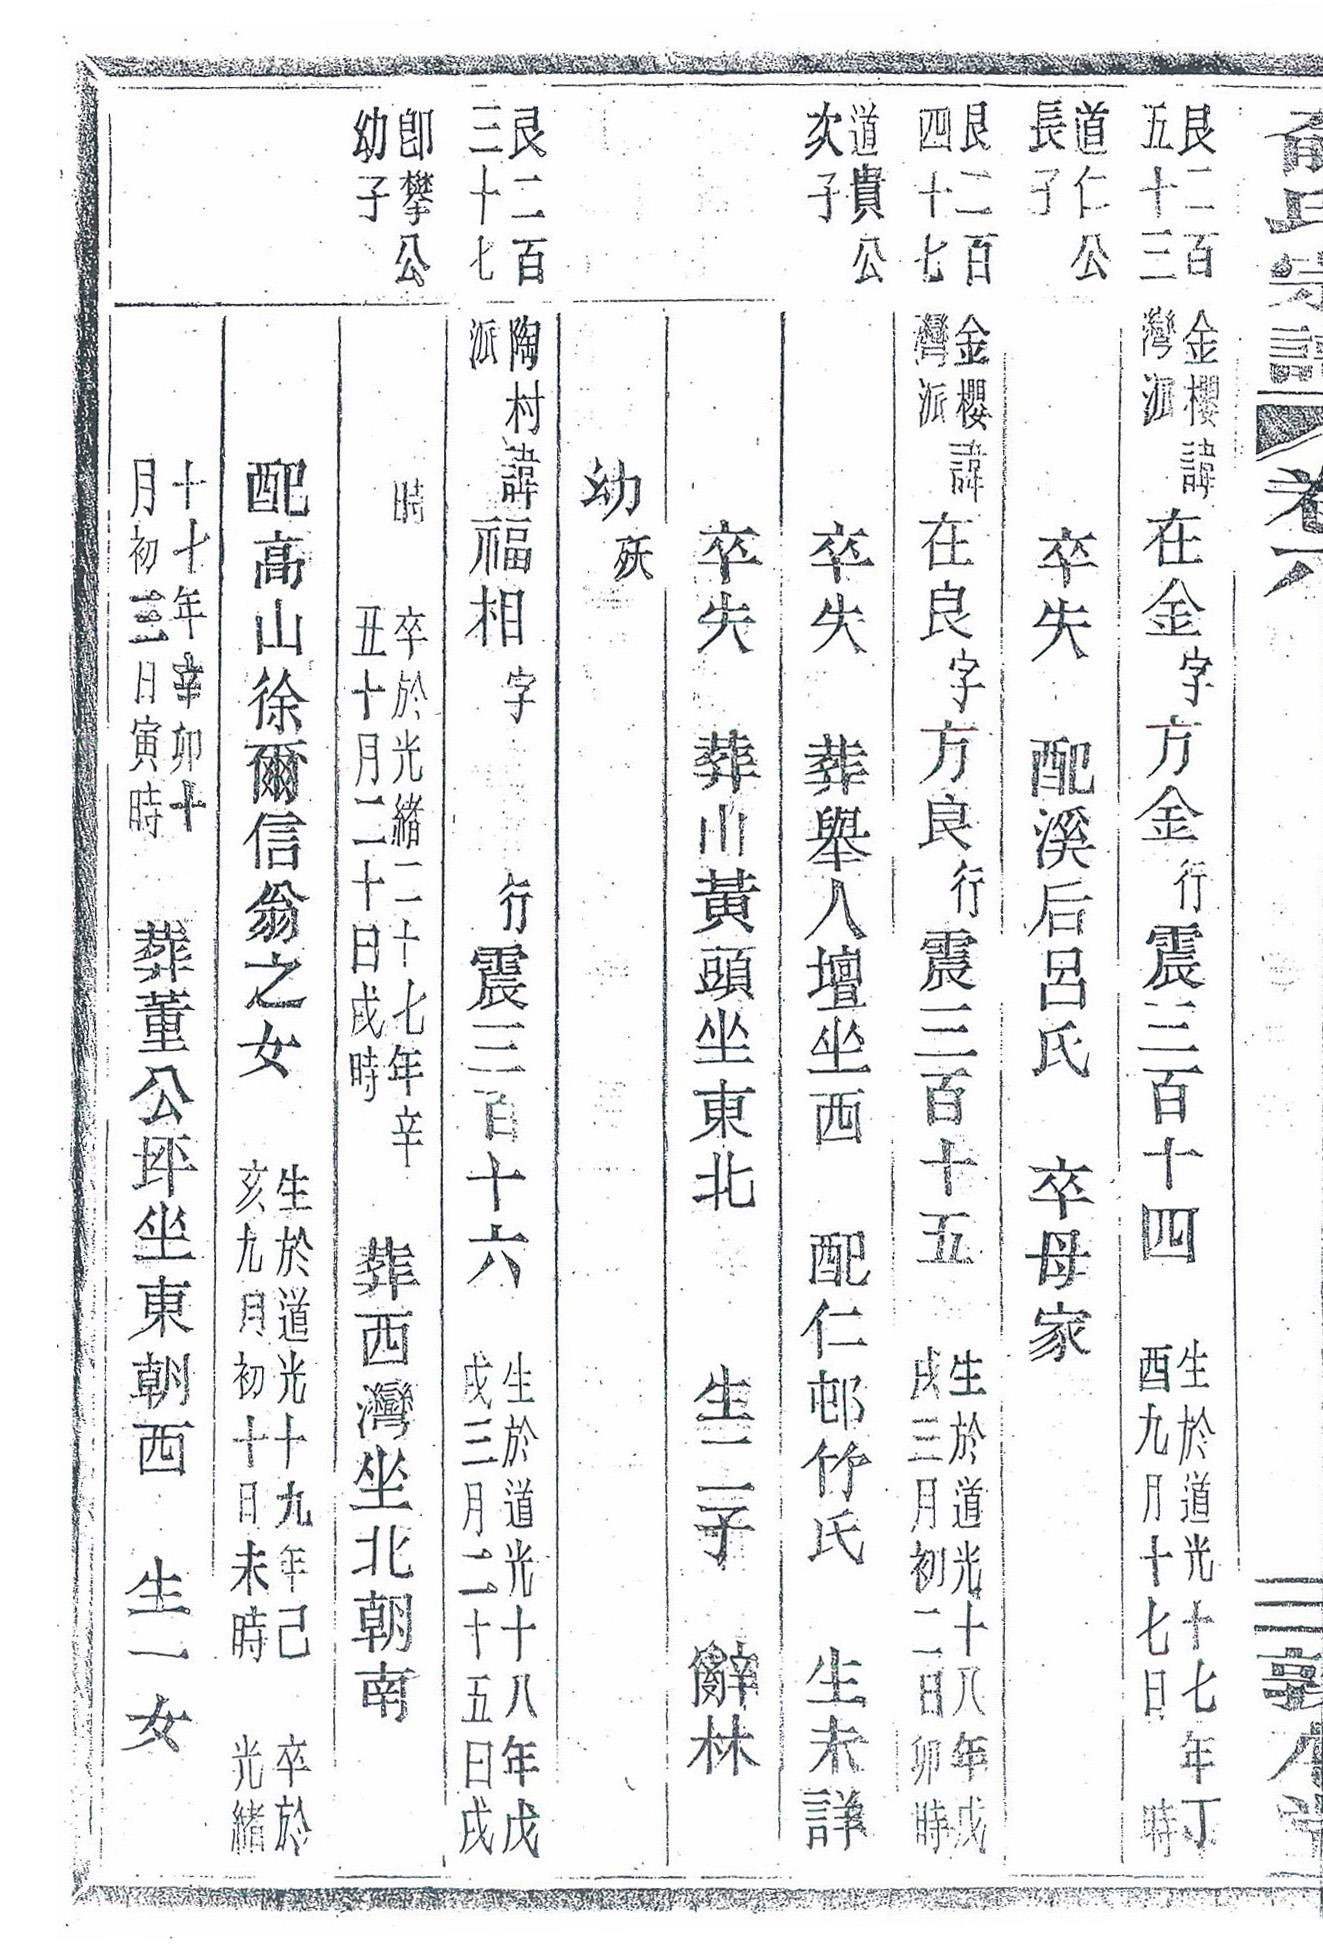 俞氏宗譜 卷六 三 敦本堂
艮二百五十三 金櫻灣派 諱在金字方金行震三百十四 生於道光十七年丁酉九月十七日 時
道仁公長子 卒失 配溪后呂氏 卒母家
艮二百四十七 金櫻灣派 諱在良字方良行震三百十五 生於道光十八年戊戌三月初二日卯時
道貴公次子 卒失 葬舉人壇坐西 配仁邨竹氏 生未詳
卒失 葬山黃頭坐東北 生二子 辭林
幼殀
艮二百三十七 陶村派 諱福相字 行震三百十六 生於道光十八年戊戌三月二十五日戌
即攀公幼子 時 卒於光緒二十七年辛丑十月二十日戌時 葬西灣坐北朝南
配高山徐爾信翁之女 生於道光十九年己亥九月初十日未時 卒於光緒
十七年辛卯十月初三日寅時 葬董公坪坐東朝西 生一女